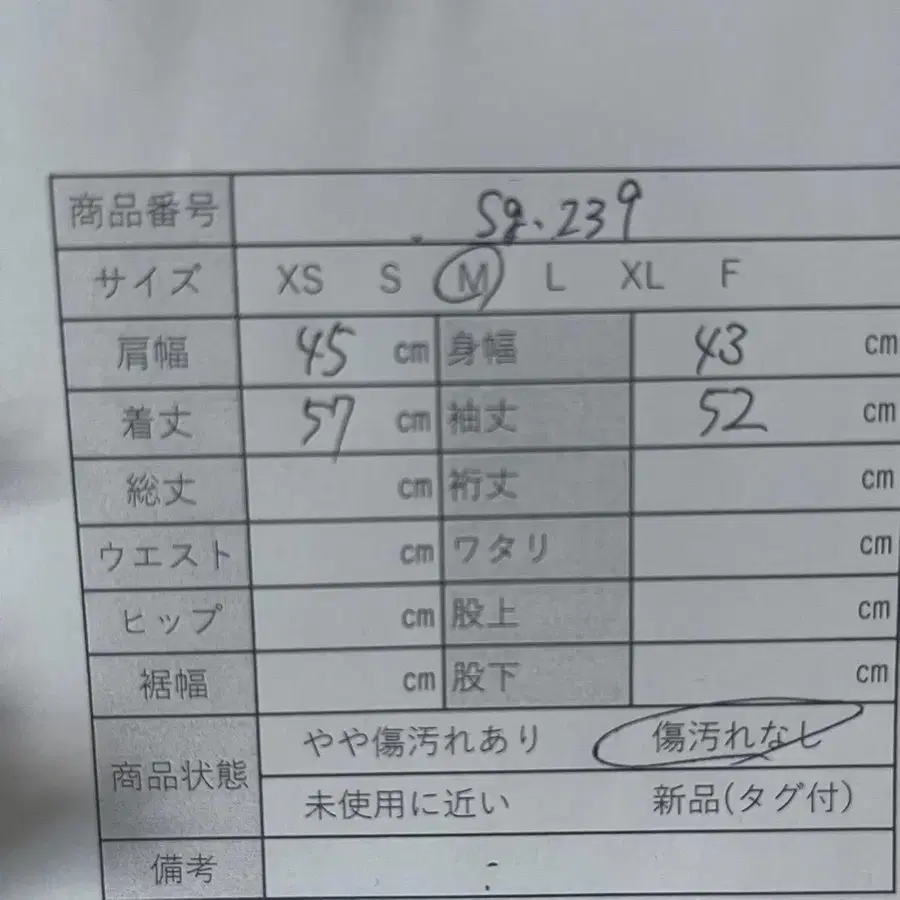 商品番号 Sg.239
サイズ XS S M L XL F
肩幅 45 cm 身幅 43 cm
着丈 57 cm 袖丈 52 cm
総丈 cm 裄丈 cm
ウエスト cm ワタリ cm
ヒップ cm 股上 cm
裾幅 cm 股下 cm
商品状態 やや傷汚れあり 傷汚れなし
未使用に近い 新品(タグ付)
備考